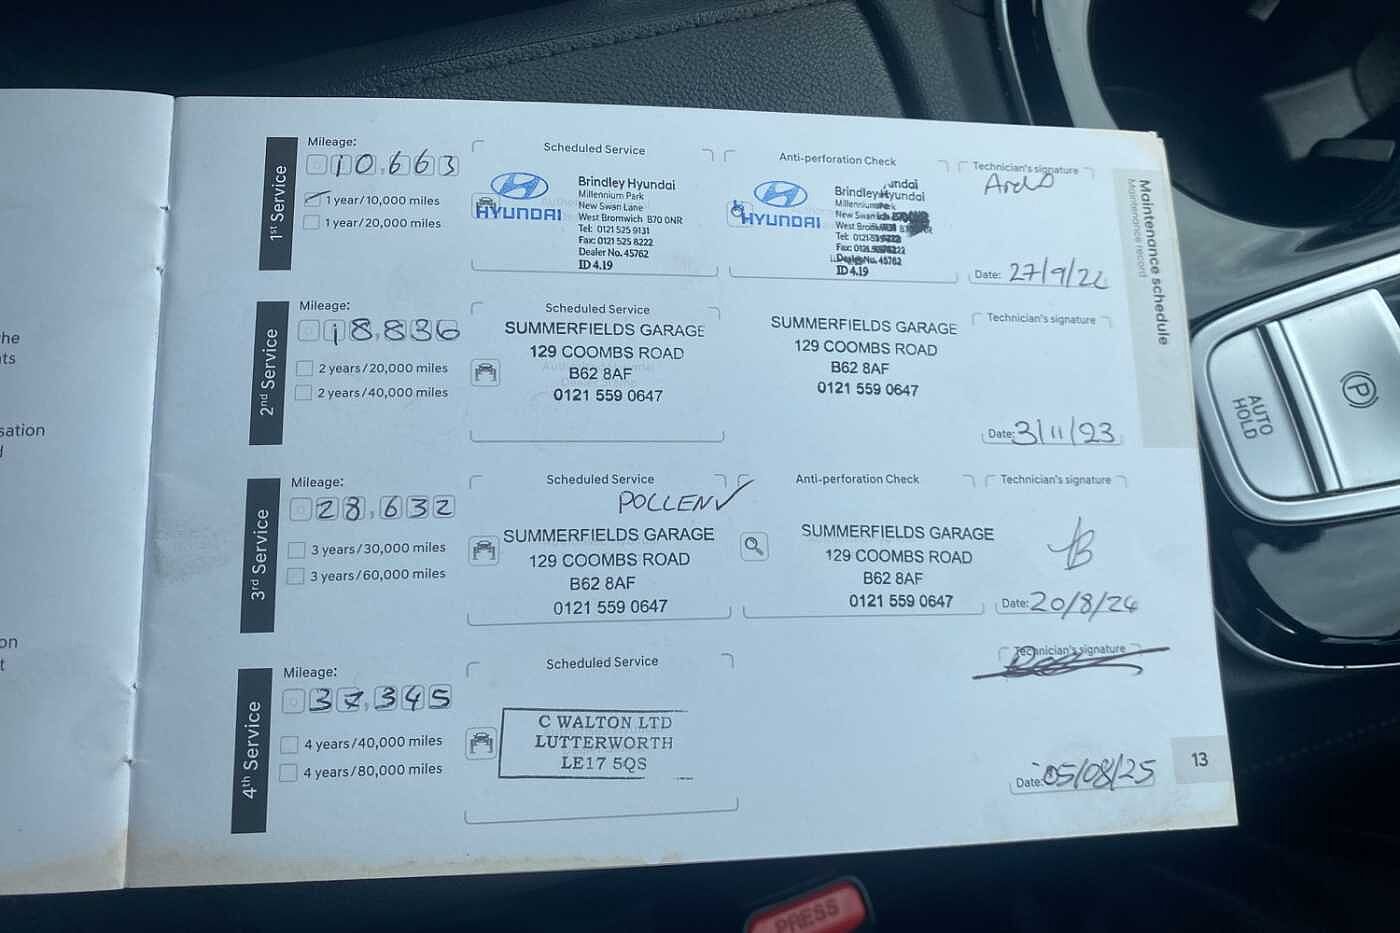 he
ts
sation
d
on
t
1st Service
Mileage:
10,663
1 year/10,000 miles
1 year/20,000 miles
Scheduled Service
HYUNDAI
Brindley Hyundai
Millennium Park
New Swan Lane
West Bromwich B70 0NR
Tel: 0121 525 9131
Fax: 0121 525 8222
Dealer No. 45762
ID 4.19
Anti-perforation Check
HYUNDAI
Brindley Hyundai
Dealer No. 45762
ID 4.19
Technician's signature
Date: 27/9/22
Maintenance schedule
Maintenance record
2nd Service
Mileage:
18,836
2 years/20,000 miles
2 years/40,000 miles
Scheduled Service
SUMMERFIELDS GARAGE
129 COOMBS ROAD
B62 8AF
0121 559 0647
SUMMERFIELDS GARAGE
129 COOMBS ROAD
B62 8AF
0121 559 0647
Technician's signature
Date: 3/11/23
3rd Service
Mileage:
28,632
3 years/30,000 miles
3 years/60,000 miles
Scheduled Service
POLLEN ✓
SUMMERFIELDS GARAGE
129 COOMBS ROAD
B62 8AF
0121 559 0647
Anti-perforation Check
SUMMERFIELDS GARAGE
129 COOMBS ROAD
B62 8AF
0121 559 0647
Technician's signature
Date: 20/8/24
4th Service
Mileage:
37,345
4 years/40,000 miles
4 years/80,000 miles
Scheduled Service
C WALTON LTD
LUTTERWORTH
LE17 5QS
Technician's signature
Date: 05/08/25
13
AUTO
HOLD
P
PRESS